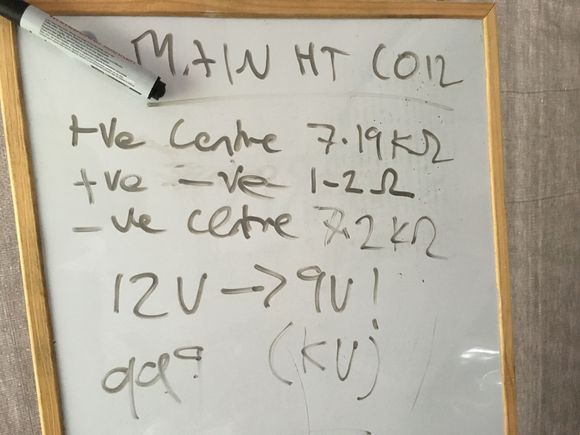 MAIN HT COIL
+ve Centre 7.19KΩ
+ve -ve 1-2Ω
-ve centre 7.2KΩ
12V -> 9V!
(KV)